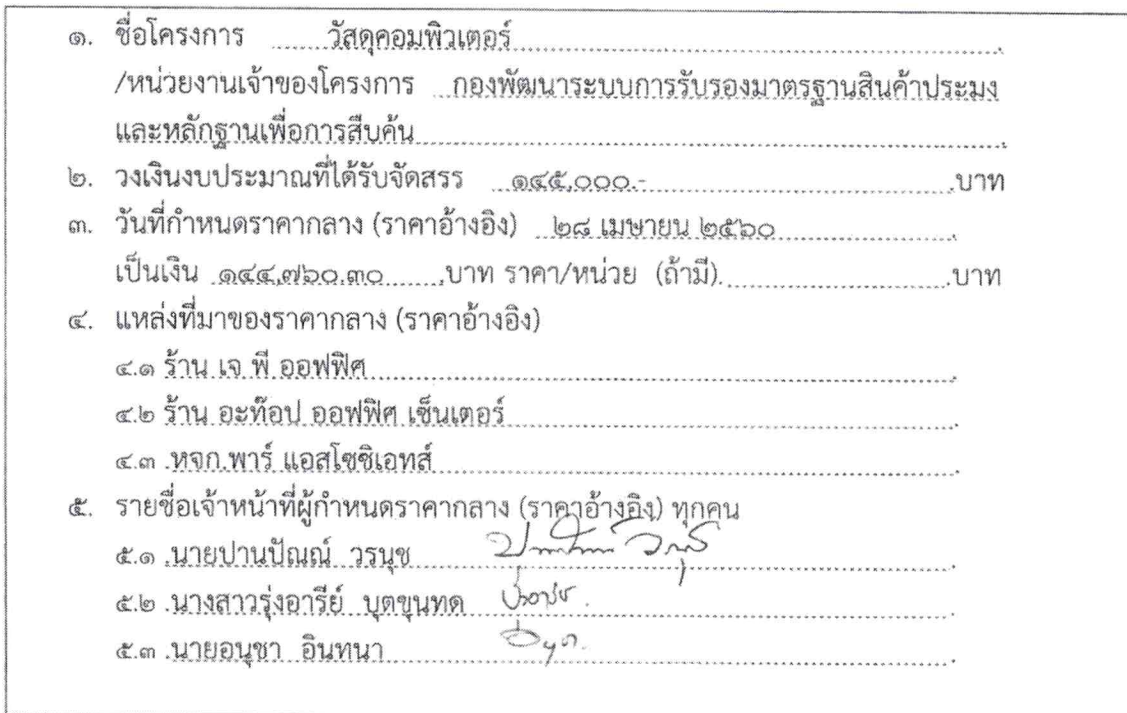 ๑. ชื่อโครงการ ......วัสดุคอมพิวเตอร์......
/หน่วยงานเจ้าของโครงการ ..กองพัฒนาระบบการรับรองมาตรฐานสินค้าประมง
และหลักฐานเพื่อการสืบค้น......
๒. วงเงินงบประมาณที่ได้รับจัดสรร ...๑๔๕,๐๐๐.-......บาท
๓. วันที่กำหนดราคากลาง (ราคาอ้างอิง) ..๒๘ เมษายน ๒๕๖๐......
เป็นเงิน ..๑๔๔,๗๖๐.๓๐......บาท ราคา/หน่วย (ถ้ามี)......บาท
๔. แหล่งที่มาของราคากลาง (ราคาอ้างอิง)
๔.๑ ร้าน เจ พี ออฟฟิศ......
๔.๒ ร้าน อะท๊อป ออฟฟิศ เซ็นเตอร์......
๔.๓ .หจก.พาร์ แอสโซซิเอทส์......
๕. รายชื่อเจ้าหน้าที่ผู้กำหนดราคากลาง (ราคาอ้างอิง) ทุกคน
๕.๑ .นายปานปัณณ์ วรนุช
๕.๒ .นางสาวรุ่งอารีย์ บุตขุนทด
๕.๓ .นายอนุชา อินทนา